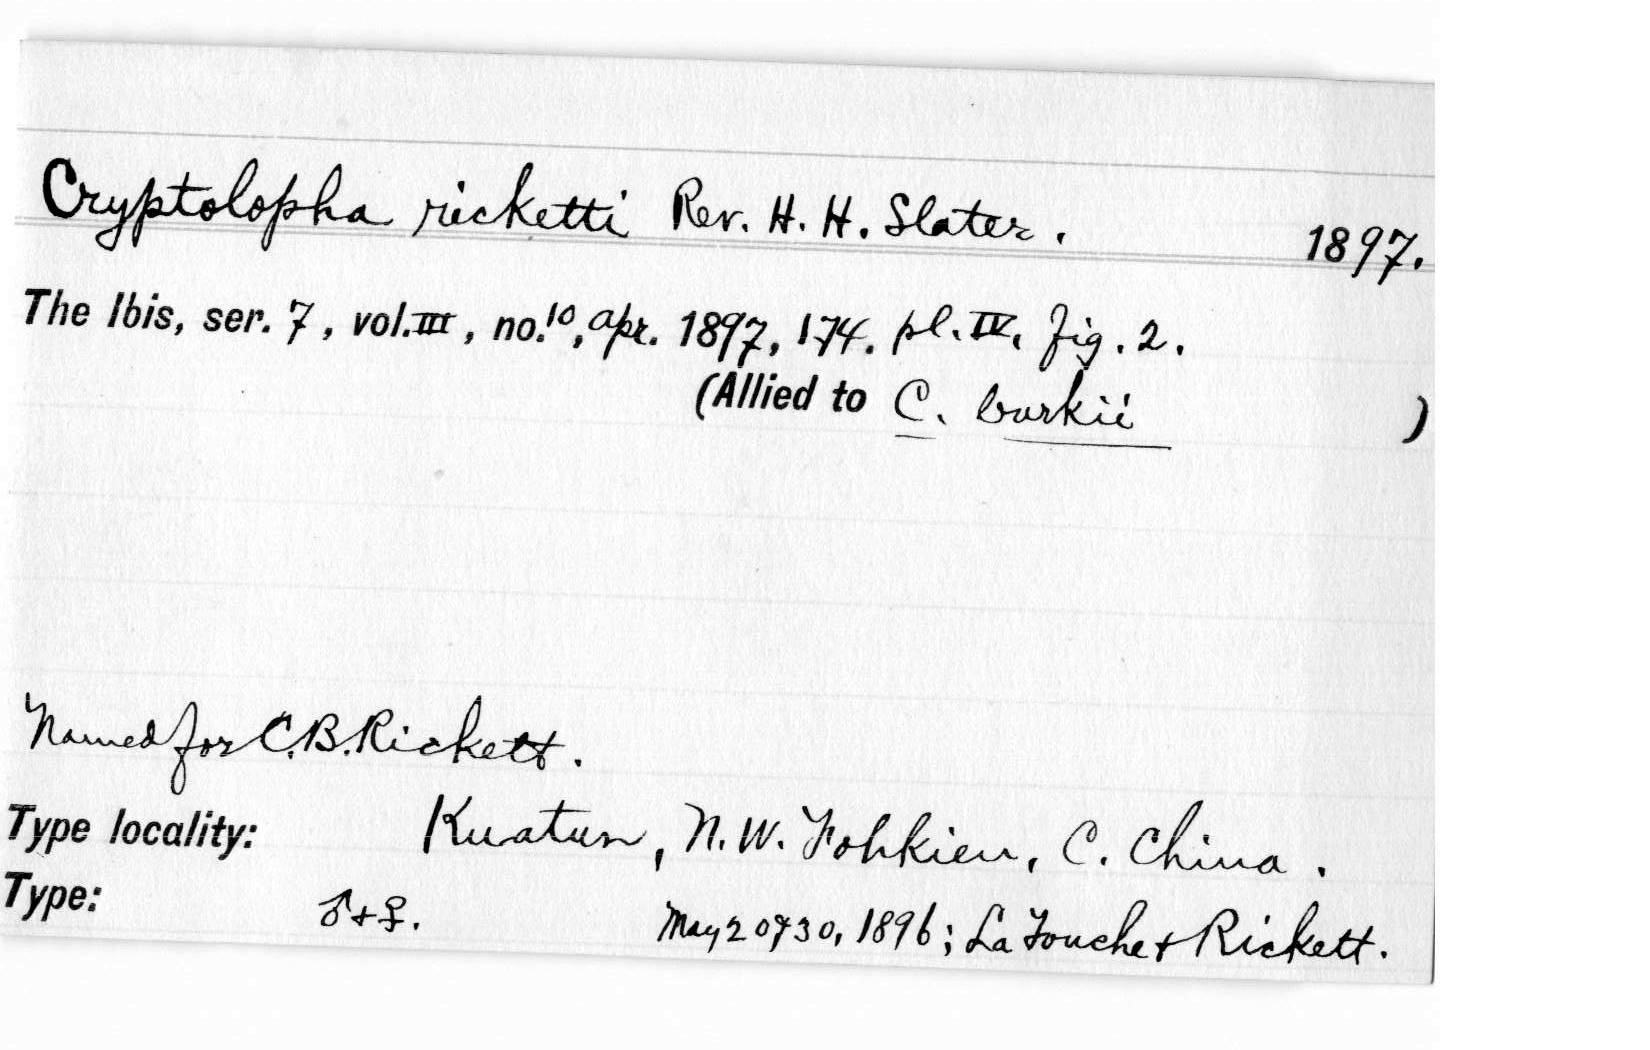 Cryptolopha ricketti Rev. H. H. Slater. 1897.
The Ibis, ser. 7, vol. III, no. 10, Apr. 1897, 174. pl. IV, fig. 2.
(Allied to C. burkii )
Named for C. B. Rickett.
Type locality: Kuatun, N. W. Fohkien, C. China.
Type: ♂ + ♀. May 20 & 30, 1896; La Touche & Rickett.